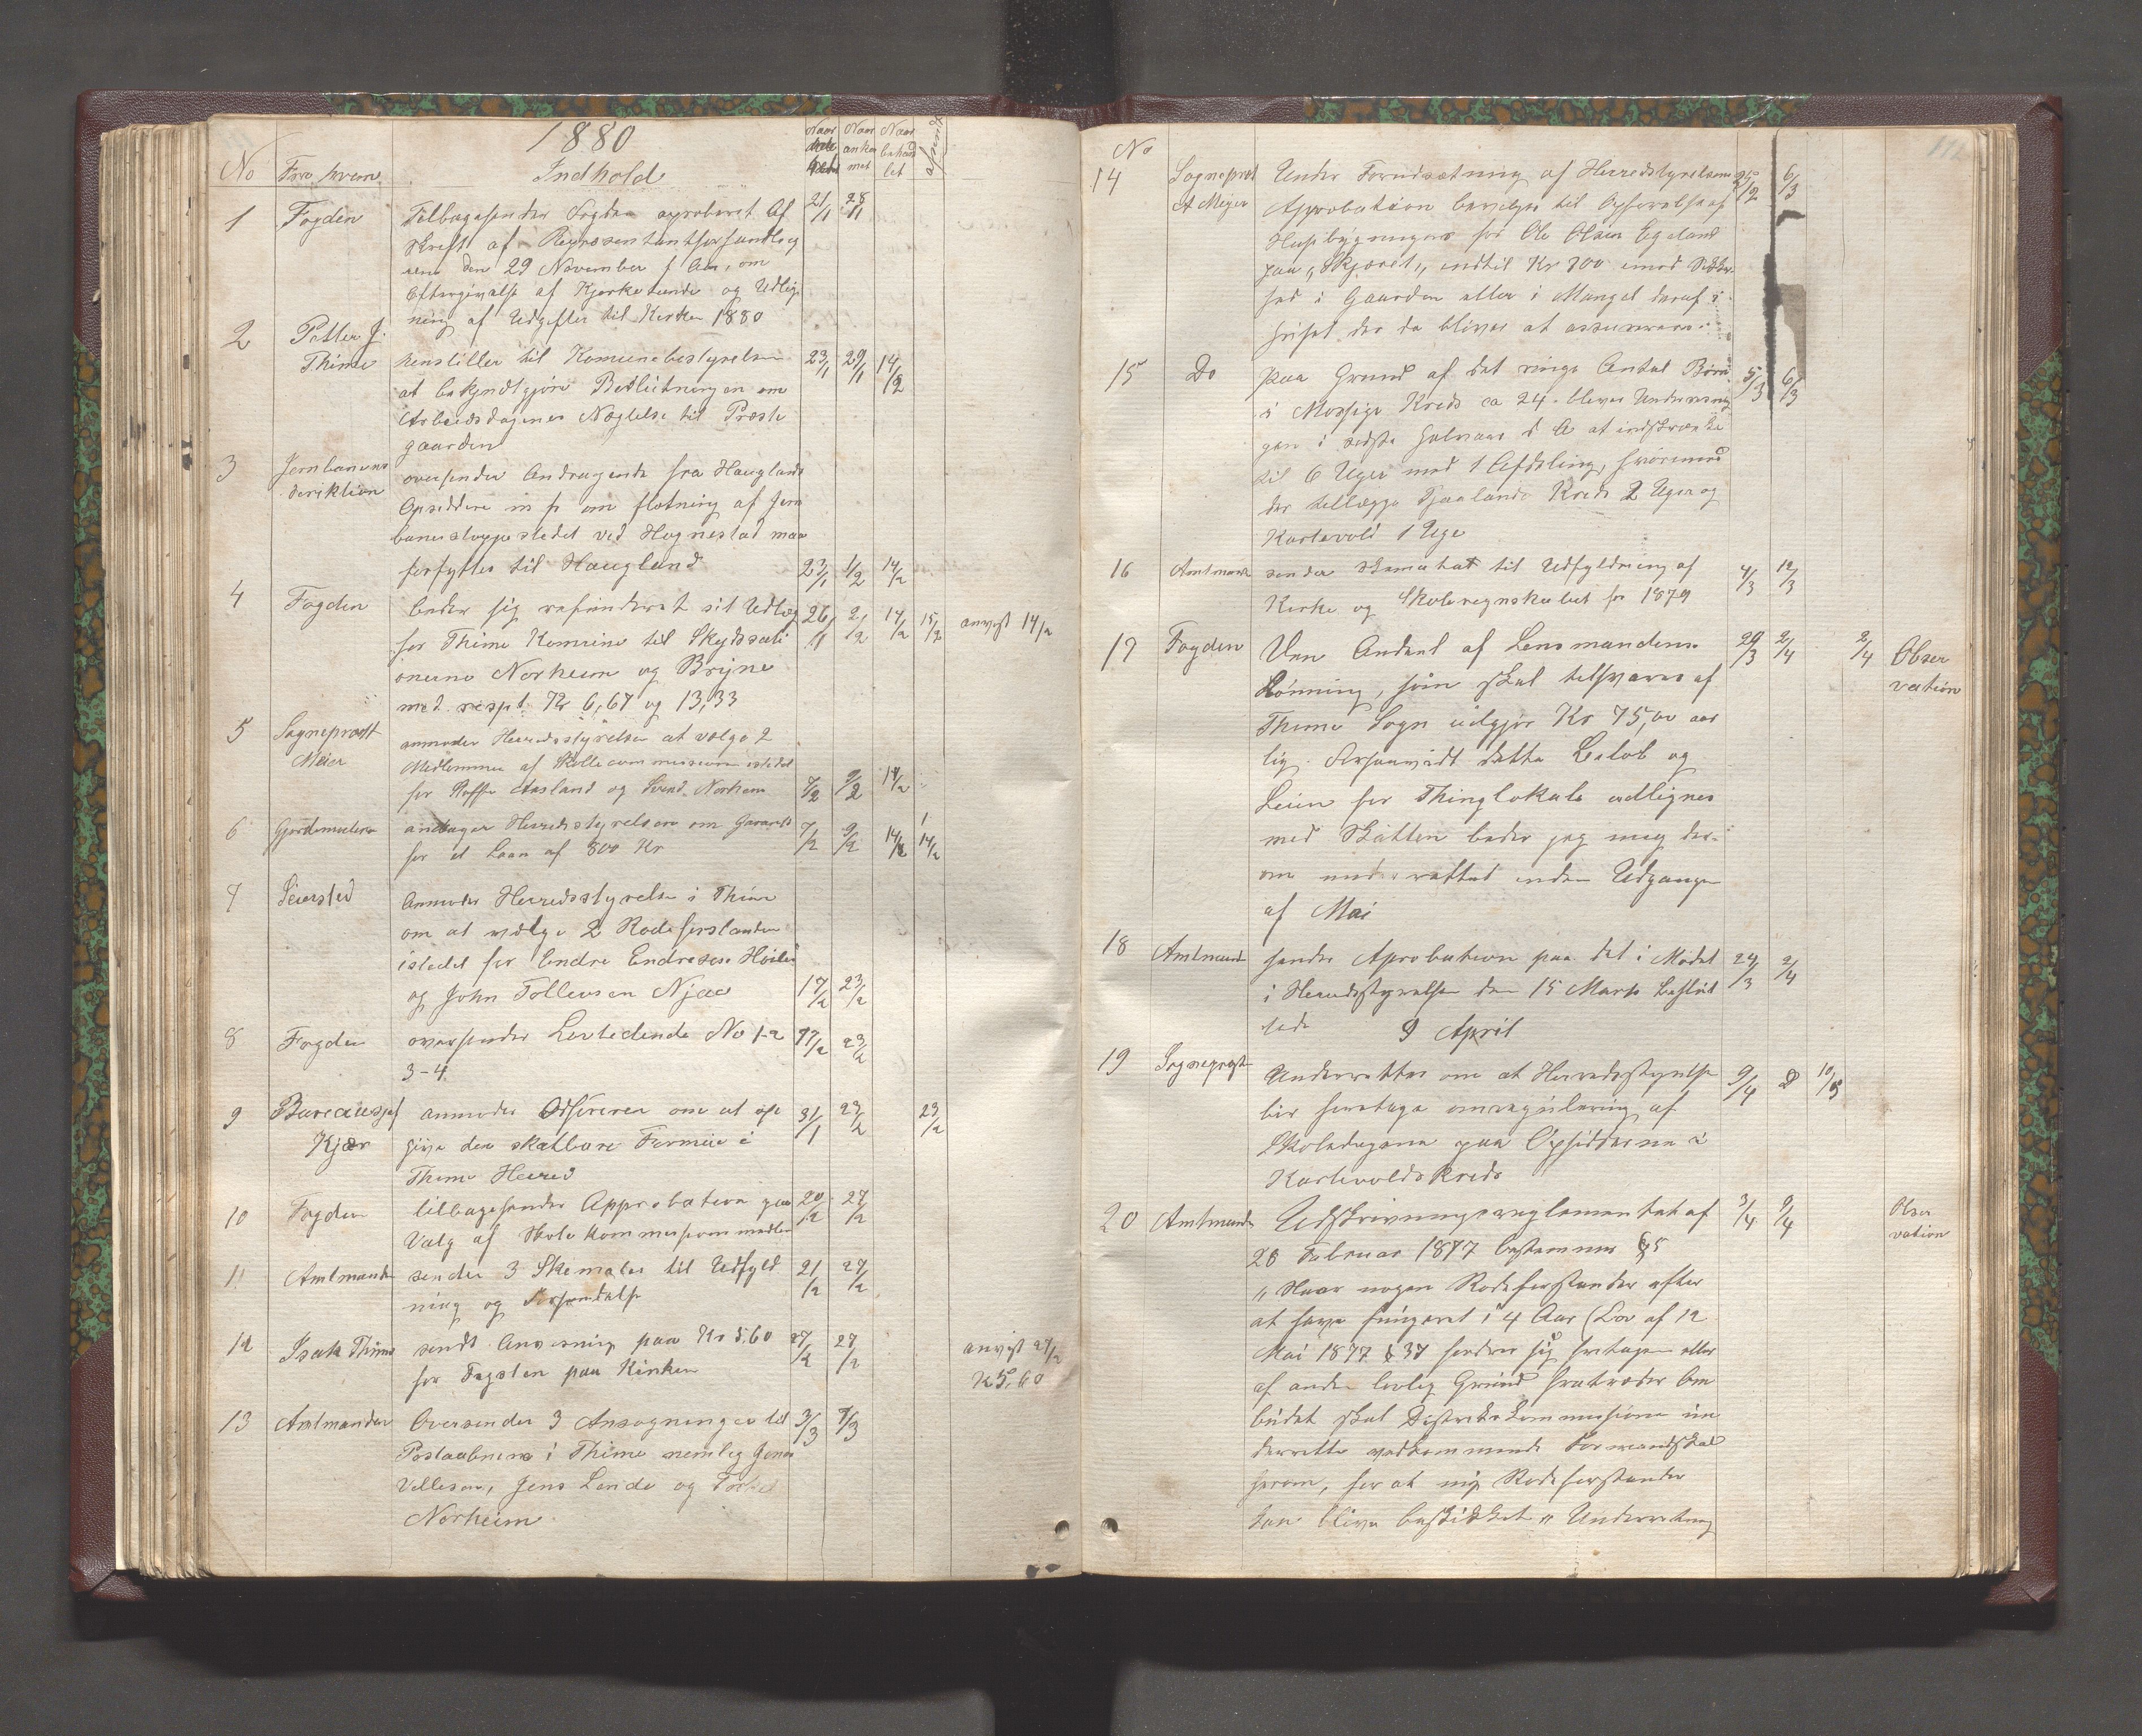 1880
No Fra hvem Indhold Naar Naar ankommet Naar behandlet afsendt
1 Fogden Tilbagesender Fogden aproberet Af 21/1 28/1
skrift af Representantforsamling
den 29 November f Aar, om
Eftergivelse af Kjerketiende og Udlig
ning af Udgifter til Kirken 1880
2 Petter J.
Thime henstiller til Komunebestyrelsen 23/1 29/1 14/2
at bekjendtgjøre Beslutningen om
Arbeidsdagenes Nægtelse til Præste
gaarden
3 Jernbanens
deriktion oversender Andragende fra Hauglands
Opsiddere om flotning af Jern
banestoppestedet ved Hognestad maa
forflyttes til Haugland 23/1 1/2 14/2
4 Fogden beder sig refunderet sit Udlæg 26/1 2/2 14/2 15/2 anvist 14/2
for Thime Komune til Skydsstati
onerne Norheim og Bryne
med respt Kr 6,67 og 13,33
5 Sogneprest
Meier anmoder Herredsstyrelsen at vælge 2
Medlemmer af Skolecommissionen istedet
for Aasland og Svend Norheim 7/2 9/2 14/2
6 Gjordemoderen andrager Herredsstyrelsen om Garanti 7/2 9/2 14/2 14/2
for et Laan af 800 Kr
7 Seiersted Anmoder Herredsstyrelsen i Thime
om at vælge 2 Rodeforstandere
istedet for Endre Endresen Høiland
og John Tollevsen Njaa 17/2 23/2
8 Fogden oversender Lovtidende No 1-2 17/2 23/2
3-4
9 Bureauchef
Kjær anmoder Ordføreren om at op 31/1 23/2 23/2
give den skatbare Formue i
Thime Herred
10 Fogden tilbagesender Approbation paa 20/2 27/2
Valg af Skolekommissionsmedlem
11 Amtmanden sender 3 Skemaer til Udfyld 21/2 27/2
ning og Forsendelse
12 Isak Thime sendt Anvisning paa Kr 5,60 27/2 27/2 anvist 27/2
for Tagsten paa Kirken K 5,60
13 Amtmanden Oversender 3 Ansøgninger til 3/3 7/3
Postaabneri i Thime nemlig Jonas
Vellesen, Jens Lende og
Norheim
111
No
14 Sogneprest Under Forudsætning af Herredstyrelsens 25/2 6/3
A Meyer Aprobation bevilges til Opførelse af
Husebygninger for Ole Olsen Egeland
paa „Skjæret„ indtil Kr 800 imod Sikker
hed i Gaarden eller i Mangel deraf i
huset der da bliver at assurere
15 Do paa Grund af det ringe Antal Børn 5/3 6/3
i Mossige Kreds ca 24 bliver Undervisnin
gen i sidste Halvaar d A at indskrænke
til 6 Uger med 1 Afdeling, hvorimod
der tillægges Tjaalands Kreds 2 Uger og
Kartevold 1 Uge
16 Amtmanden sender Skemahæt til Udfyldning af 4/3 12/3
Kirke og Skoleregnskabet for 1879
17 Fogden Den Andeel af Lensmandens 29/3 2/4 2/4 Obser
vation
Lønning, som skal tilsvares af
Thime Sogn udgjør Kr 75,00 aar
lig. Forsaavidt dette Beløb og
Leien for Thinglokale udlignes
med Skatten beder jeg mig der
om underrettet inden Udgangen
af Mai
18 Amtmanden sender Aprobation paa det i Mødet 24/3 2/4
i Herredsstyrelsen den 15 Marts Beslut
tede
9 April
19 Sogneprest Underretter om at Herredsstyrelsen 9/4 10/5
bør foretage omregulering af
Skoledagene paa Opsidderne i
Kartevolds Kreds
20 Amtmanden Udskrivningsreglementet af 3/4 9/4 Obser
vation
28 Februar 1877 bestemmer § 5
„Naar nogen Rodeforstander efter
at have fungeret i 4 Aar (Lov af 12
Mai 1877 § 37 fordrer sig fritagen eller
af anden lovlig Grund fratræder Om
budet skal Distriktskommissionen un
derrette vedkommende Formandskab
herom, for at ny Rodeforstander
kan blive beskikket" Underretning